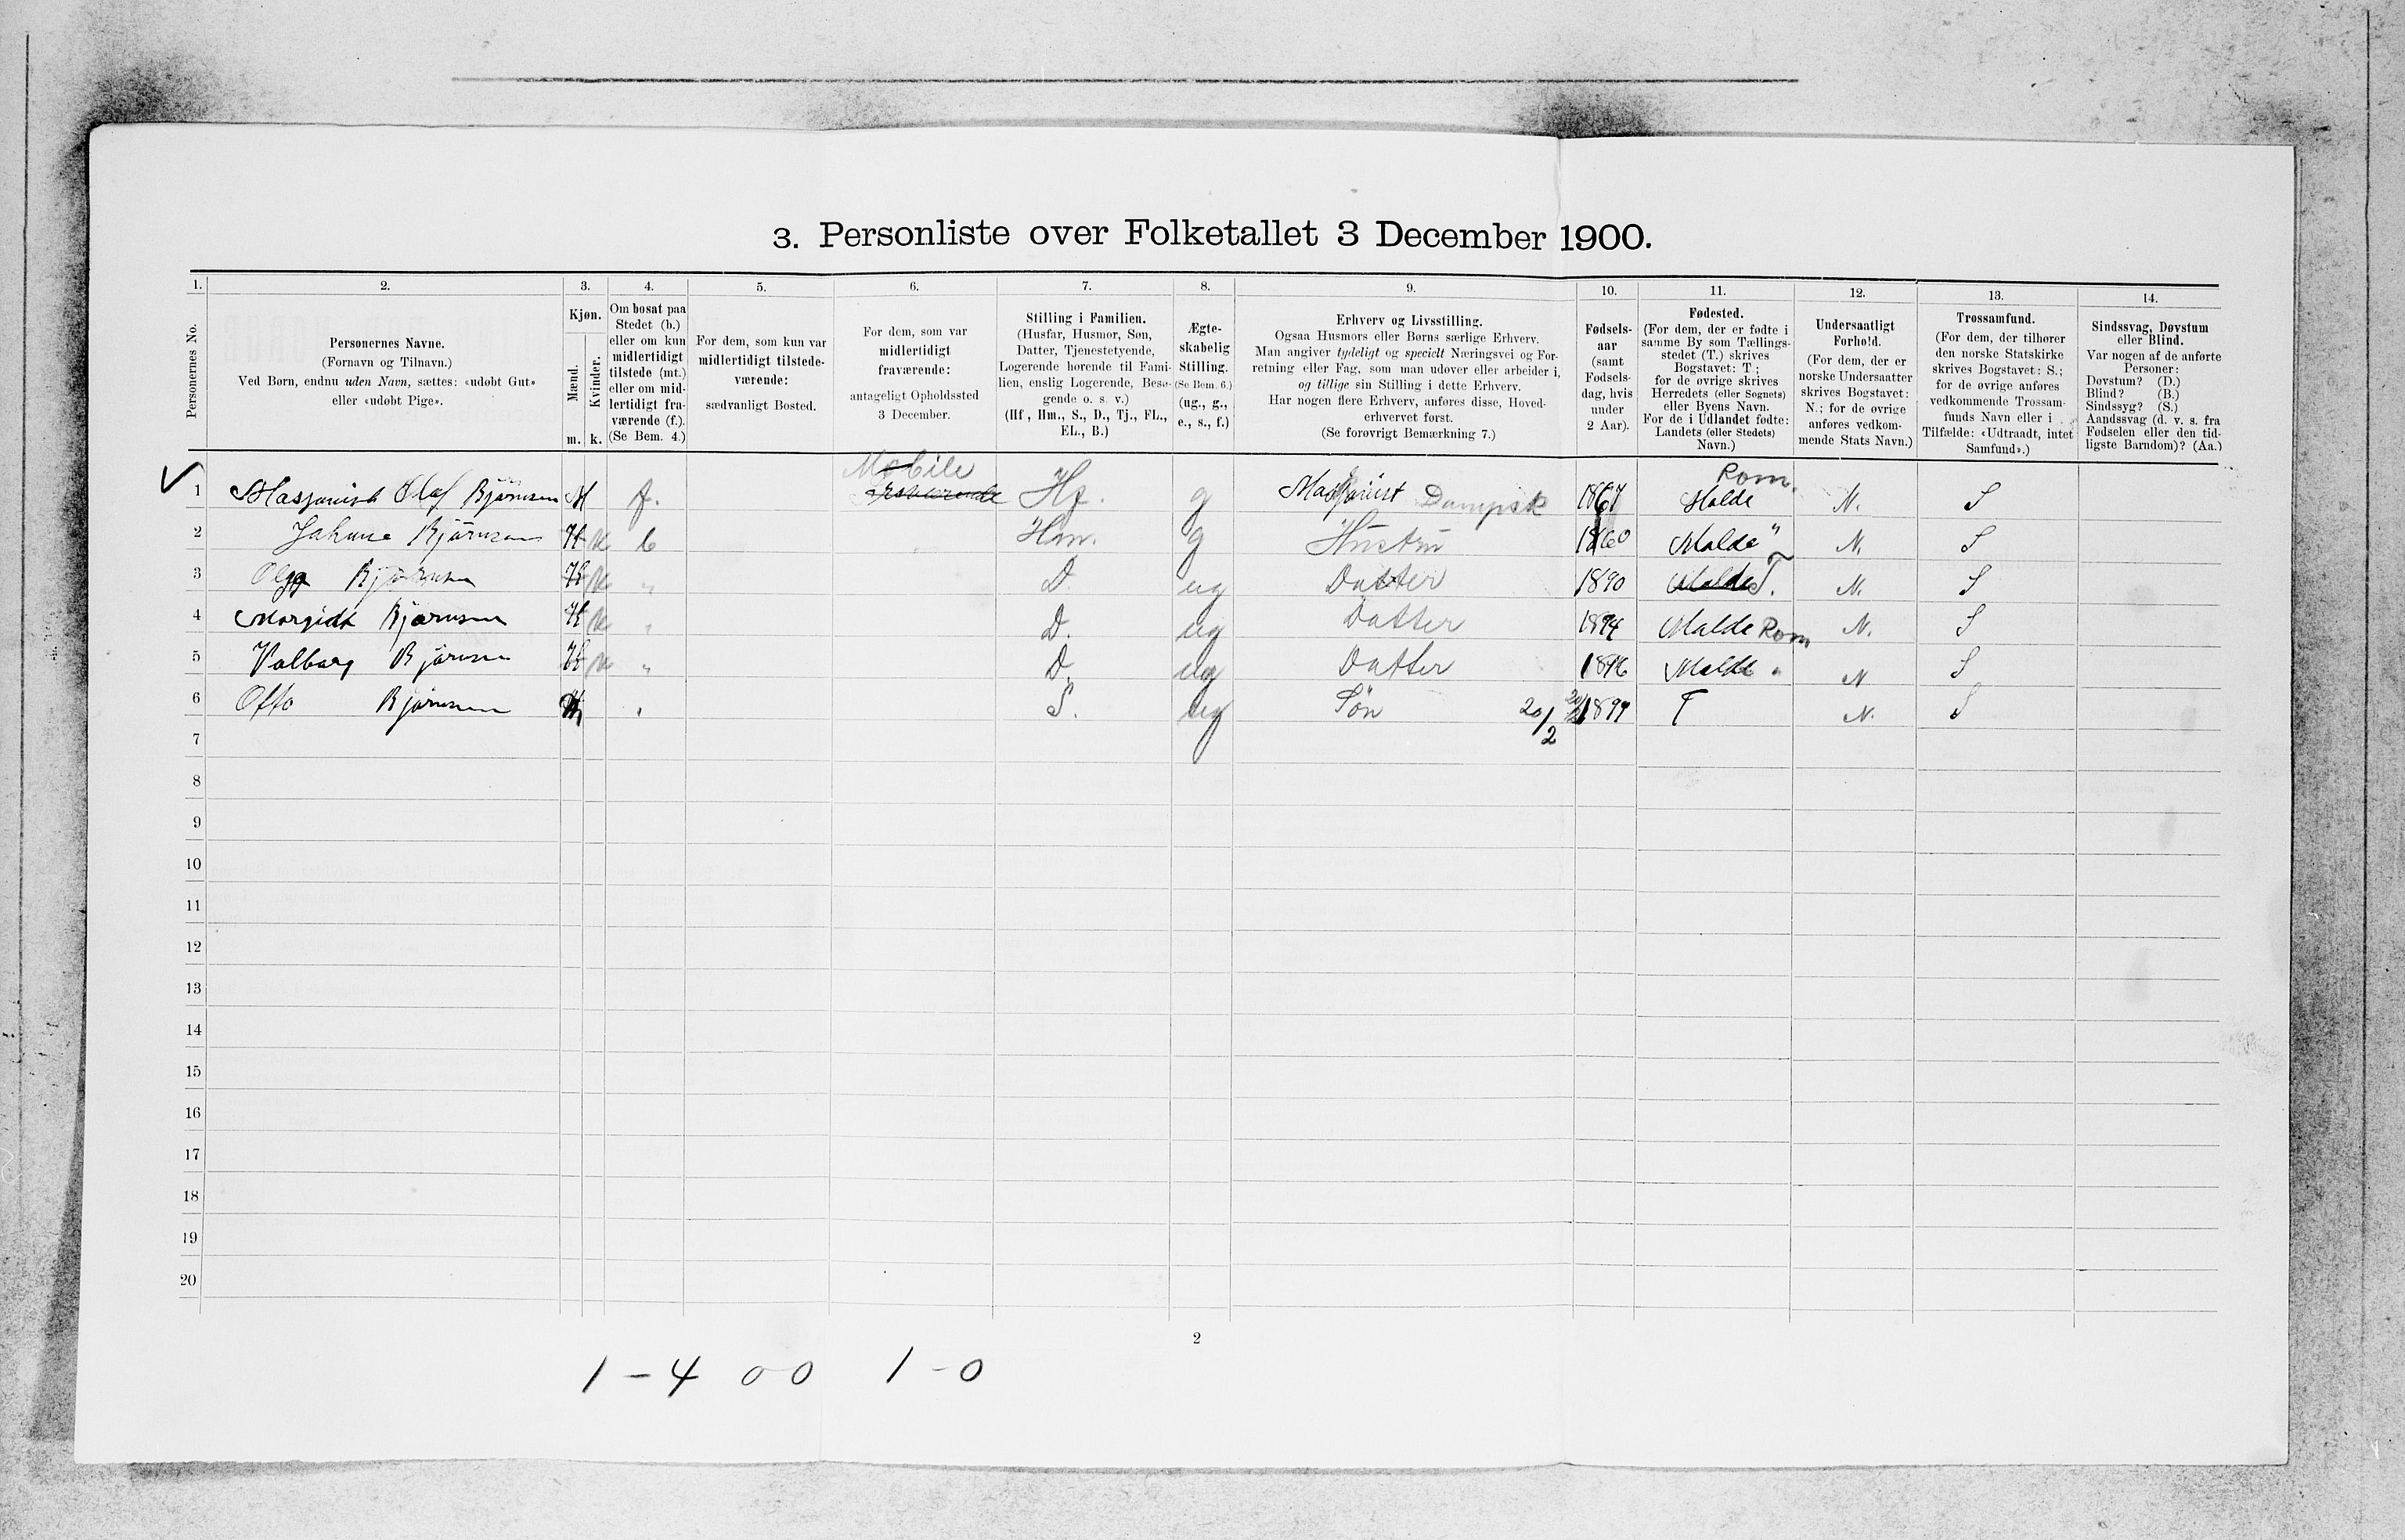 3. Personliste over Folketallet 3 December 1900.
1. 2. 3. 4. 5. 6. 7. 8. 9. 10. 11. 12. 13. 14.
Personernes No.
Personernes Navne.
(Fornavn og Tilnavn.)
Ved Børn, endnu uden Navn, sættes: «udøbt Gut»
eller «udøbt Pige».
Kjøn.
Mænd.
Kvinder.
m. k.
Om bosat paa
Stedet (b.)
eller om kun
midlertidigt
tilstede (mt.)
eller om mid-
lertidigt fra-
værende (f.).
(Se Bem. 4.)
For dem, som kun var
midlertidigt tilstede-
værende:
sædvanligt Bosted.
For dem, som var
midlertidigt
fraværende:
antageligt Opholdssted
3 December.
Stilling i Familien.
(Husfar, Husmor, Søn,
Datter, Tjenestetyende,
Logerende hørende til Fami-
lien, enslig Logerende, Besø-
gende o. s. v.)
(Hf, Hm., S., D., Tj., FL.,
EL., B.)
Ægte-
skabelig
Stilling.
(Se Bem. 6.)
(ug., g.,
e., s., f.)
Erhverv og Livsstilling.
Ogsaa Husmors eller Børns særlige Erhverv.
Man angiver tydeligt og specielt Næringsvei og For-
retning eller Fag, som man udøver eller arbeider i,
og tillige sin Stilling i dette Erhverv.
Har nogen flere Erhverv, anføres disse, Hoved-
erhvervet først.
(Se forøvrigt Bemærkning 7.)
Fødsels-
aar
(samt
Fødsels-
dag, hvis
under
2 Aar).
Fødested.
(For dem, der er fødte i
samme By som Tællings-
stedet (T.) skrives
Bogstavet: T.;
for de øvrige skrives
Herredets (eller Sognets)
eller Byens Navn.
For de i Udlandet fødte:
Landets (eller Stedets)
Navn.)
Undersaatligt
Forhold.
(For dem, der er
norske Undersaatter
skrives Bogstavet:
N.; for de øvrige
anføres vedkom-
mende Stats Navn.)
Trossamfund.
(For dem, der tilhører
den norske Statskirke
skrives Bogstavet: S.;
for de øvrige anføres
vedkommende Trossam-
funds Navn eller i
Tilfælde: «Udtraadt, intet
Samfund».)
Sindssvag, Døvstum
eller Blind.
Var nogen af de anførte
Personer:
Døvstum? (D.)
Blind? (B.)
Sindssyg? (S.)
Aandssvag (d. v. s. fra
Fødselen eller den tid-
ligste Barndom)? (Aa.)
Mobile Rom.
1 Masjonist Olaf Bjørnsen M f. Hf. g Maskonist Dampsk 1867 Molde N. S
2 Bjørnsen K k b Hm. g Hustru 1860 Molde " N. S
3 Olga Bjørnsen K k " D ug Datter 1890 Molde T. N. S
4 Margidt Bjørnsen K k " D. ug Datter 1894 Molde Rom N. S
5 Valborg Bjørnsen K k " D. ug Datter 1896 Molde " N S
6 Otto Bjørnsen " S. ug Søn 20/2 1899 T N. S
7
8
9
10
11
12
13
14
15
16
17
18
19
20
2
1 - 4 0 0 1 - 0